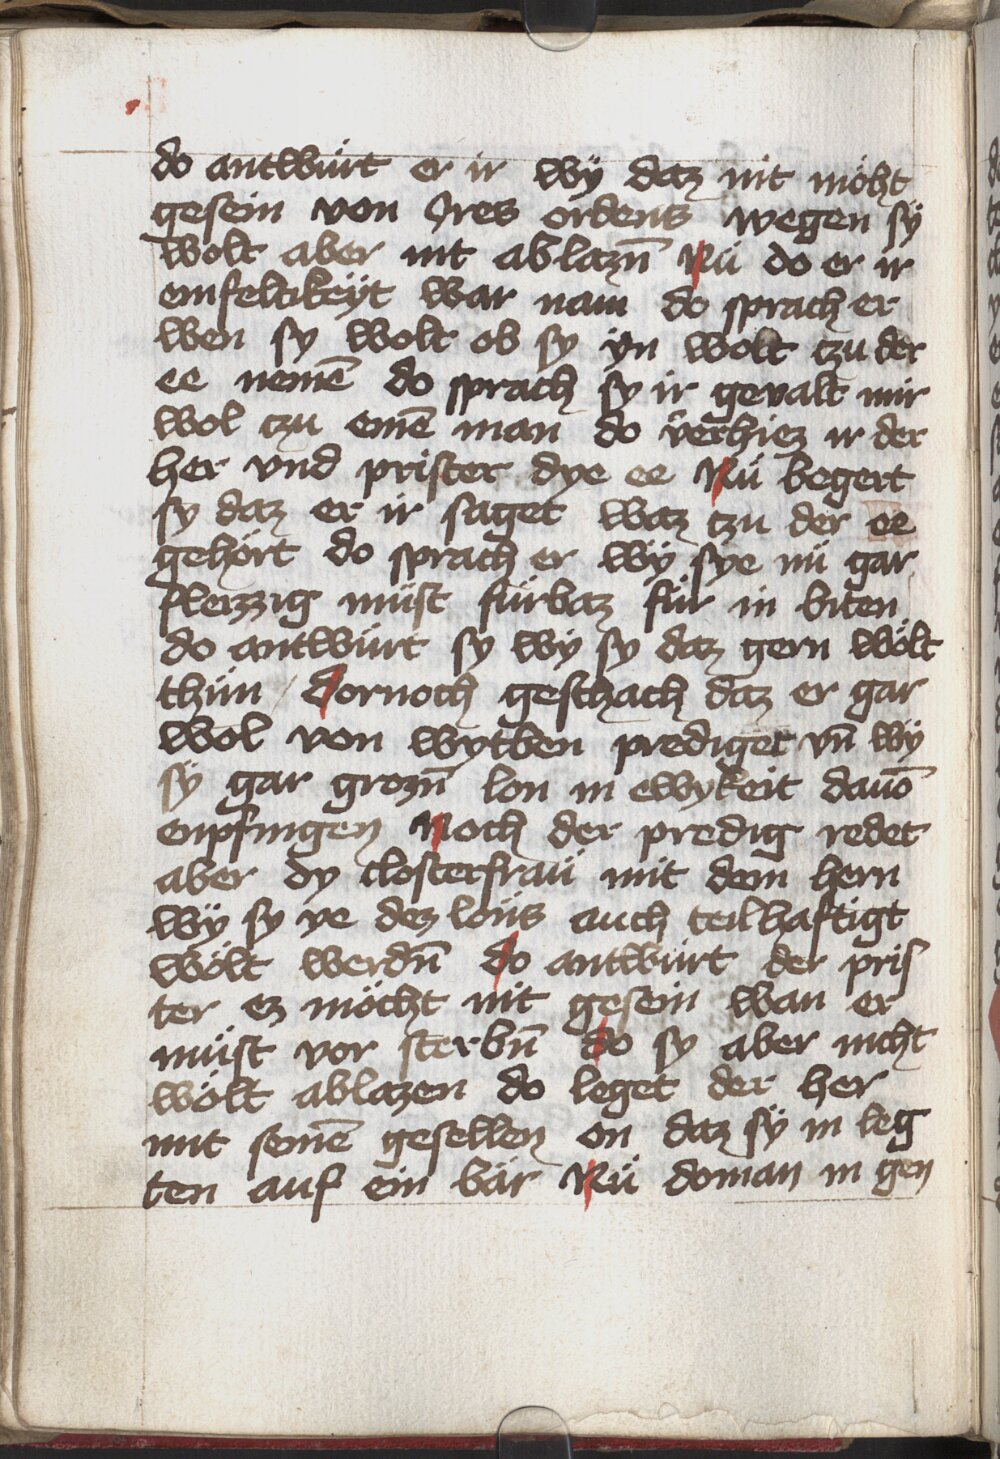 do antwürt er ir wÿ daz nit möht
gesein von Jres ordens wegen sÿ
wolt aber nit ablazn̄ Nü do er ir
einfeltikeÿt war nam do sprach er
wen sy wolt ob sy ÿn wolt tzu der
ee nemē do sprach sy ir gevalt mir
wol tzu einē man do verhiez ir der
her vnd prister dye ee Nü begert
sy daz er ir saget waz tzu der ee
gehört do sprach er wÿ sye nü gar
fleizzig müst fürbaz für in biten
do antwürt sy wÿ sy daz gern wölt
thün / Dornoch geschach daz er gar
wol von wytben prediget vn̄ wÿ
sÿ gar grozn̄ lon in ewykeit dauō
enpfingen Noch der predig redet
aber dy closterfraü mit dem hern
wÿ sy ye dez löns auch teilhaftigt
wölt werdn̄ do antwürt der pris
ter ez möcht nit gesein wan er
müst vor sterbn̄ do sy aber nicht
wölt ablazen do leget der her
mit seinē gesellen on daz sÿ in leg
ten auf ein bär Nü do man in gen